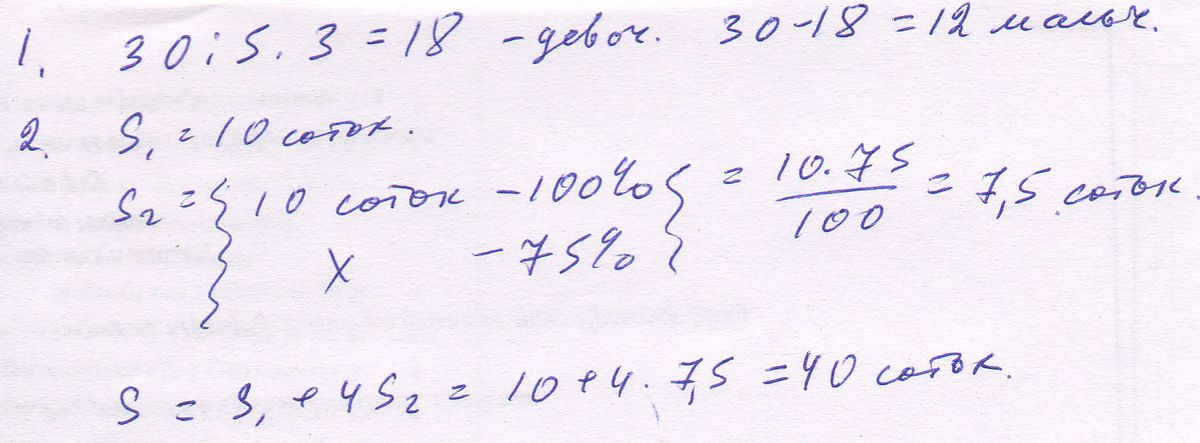 1. 30 : 5 · 3 = 18 - девоч. 30 - 18 = 12 мальч.
2. S₁ = 10 соток.
S₂ = { 10 соток - 100% } = 10 · 75 / 100 = 7,5 соток.
х - 75%
S = S₁ + 4S₂ = 10 + 4 · 7,5 = 40 соток.